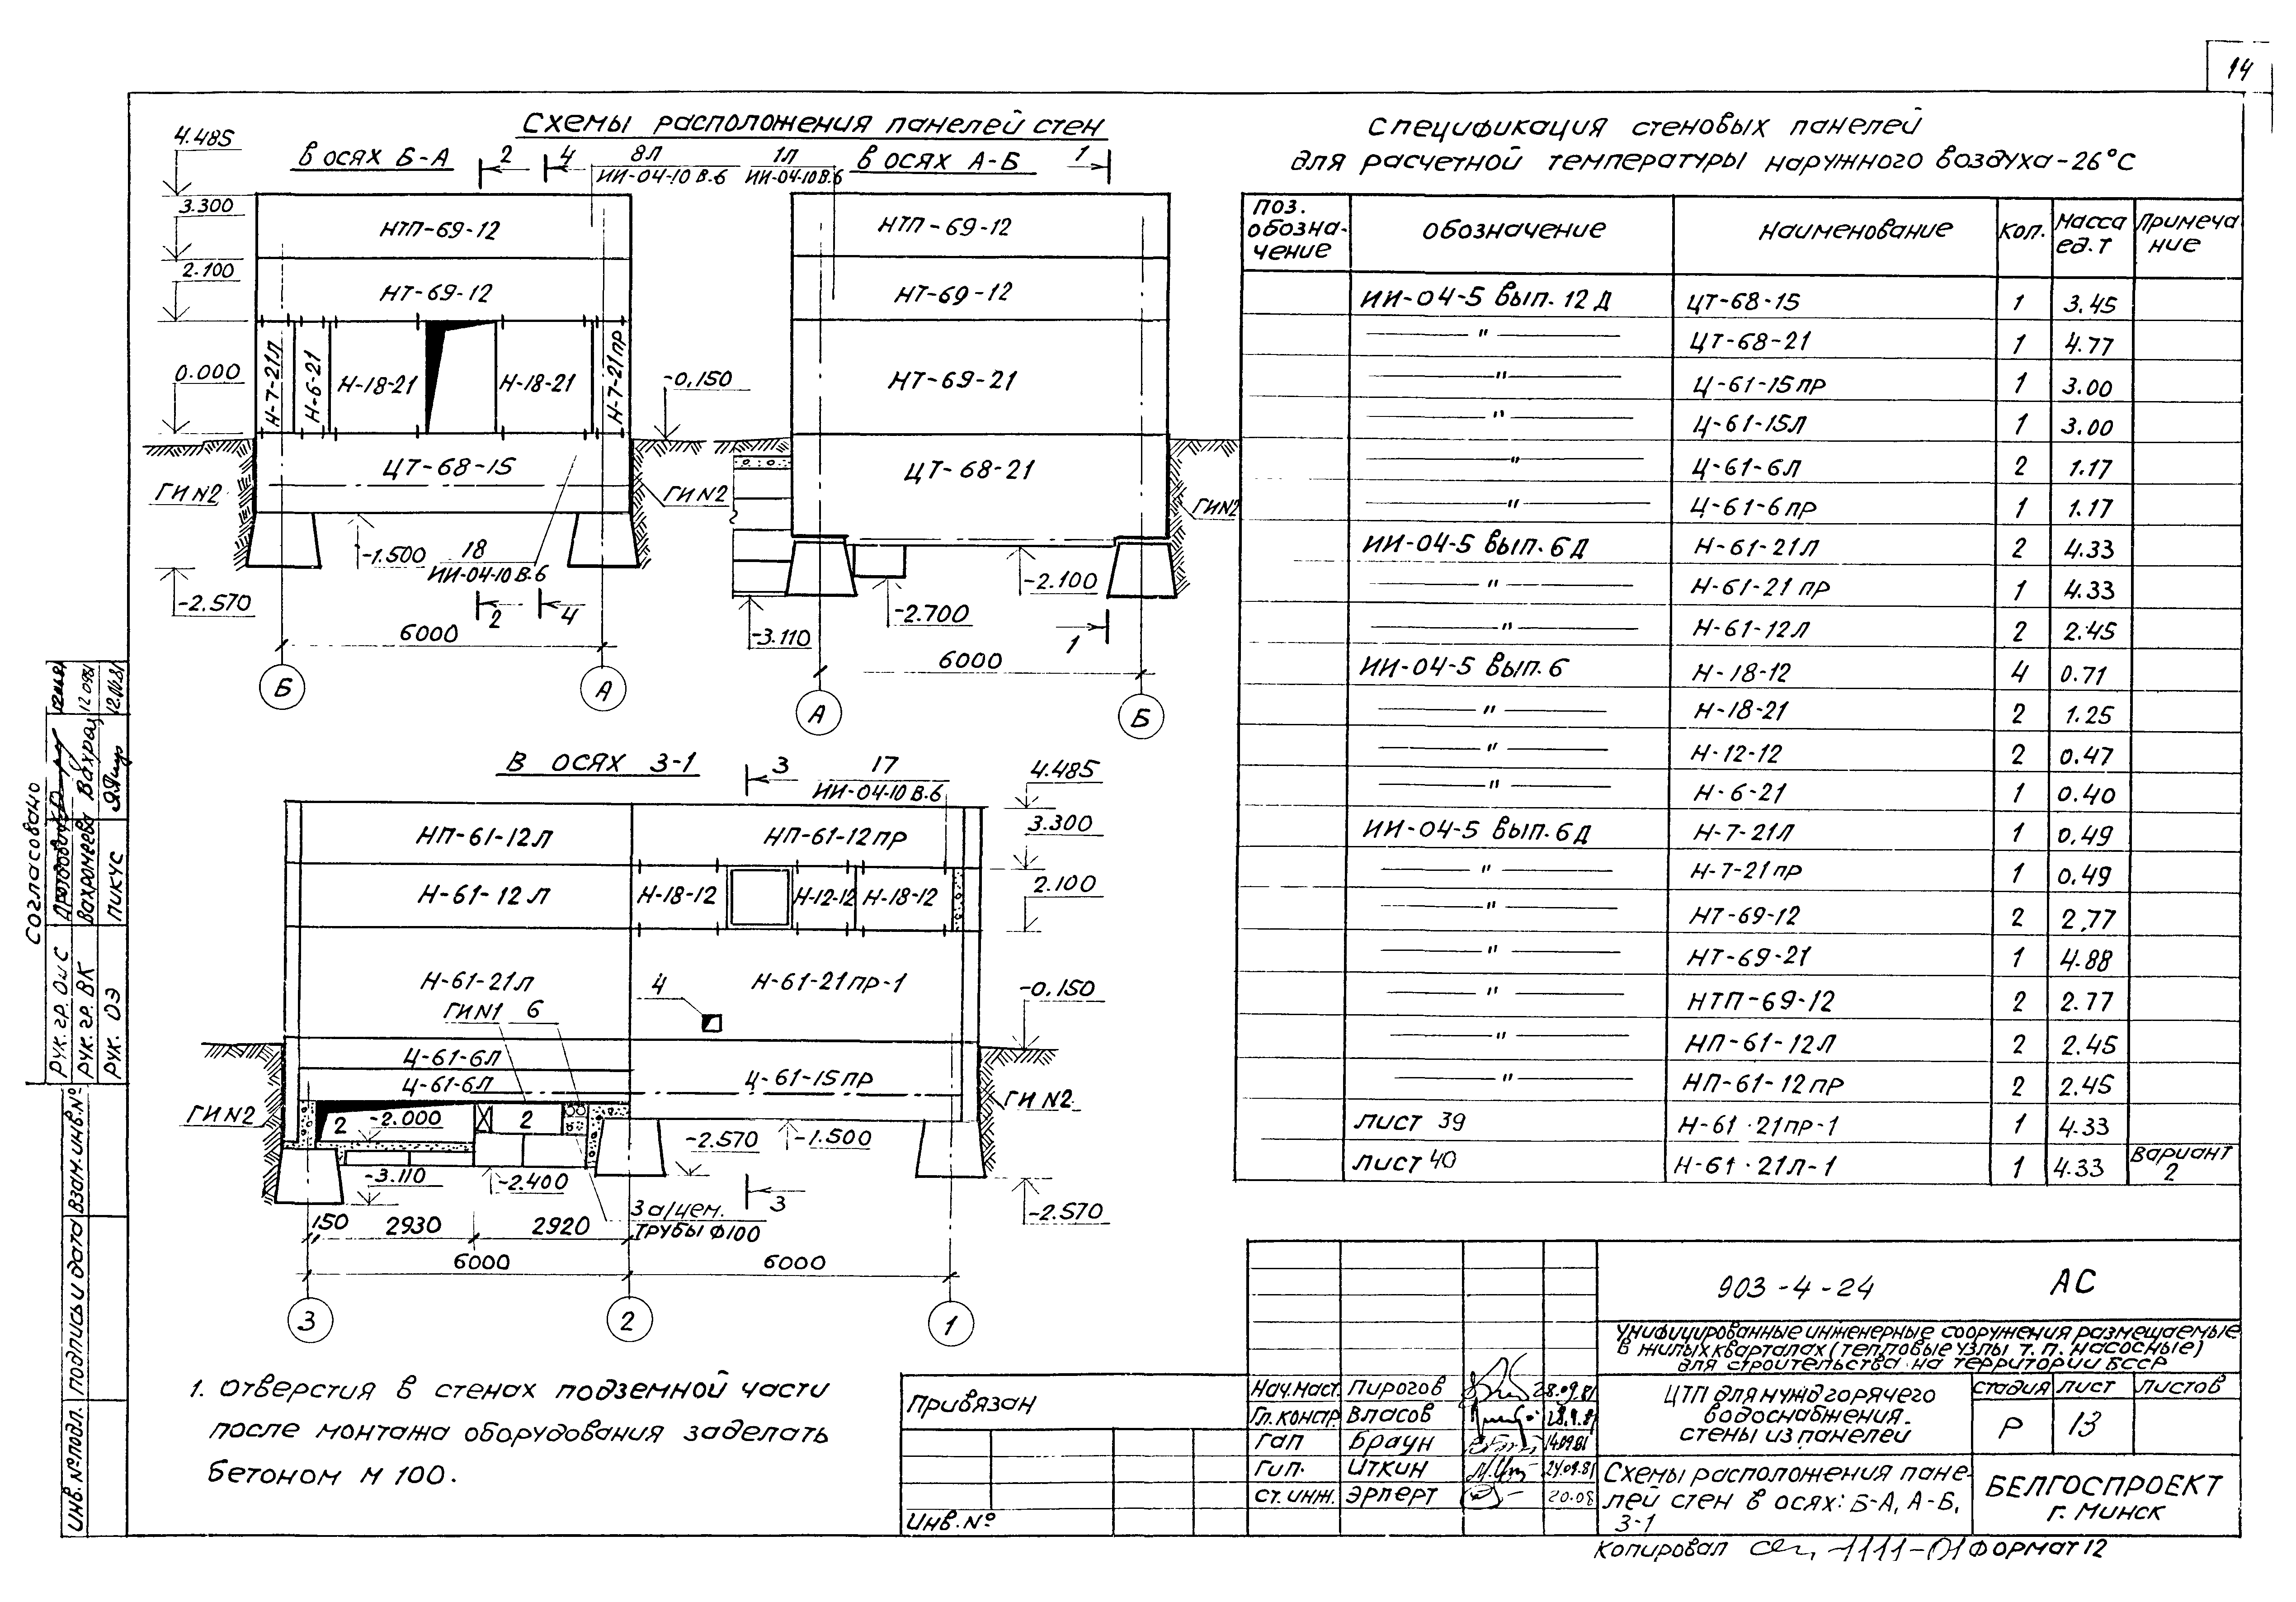 14
Схемы расположения панелей стен
в осях Б-А
2
4
8Л
ИИ-04-10 В.6
1Л
ИИ-04-10 В.6
в осях А-Б
1
4.485
3.300
2.100
0.000
НТП-69-12
НТ-69-12
Н-7-21Л
Н-6-21
Н-18-21
Н-18-21
Н-7-21ПР
ЦТ-68-15
ГИ N2
ГИ N2
-0.150
-1.500
18
ИИ-04-10 В.6
-2.570
2
4
6000
Б
А
НТП-69-12
НТ-69-12
НТ-69-21
ЦТ-68-21
ГИ N2
-2.100
-2.700
-3.110
1
6000
А
Б
В осях 3-1
3
17
ИИ-04-10 В.6
4.485
3.300
2.100
-0.150
НП-61-12Л
НП-61-12ПР
Н-61-12Л
Н-18-12
Н-12-12
Н-18-12
Н-61-21Л
4
Н-61-21ПР-1
ГИ N1
6
Ц-61-6Л
Ц-61-6Л
Ц-61-15ПР
ГИ N2
ГИ N2
2
-2.000
2
-2.570
-1.500
-3.110
-2.400
3
-2.570
3 а/цем.
трубы Ф100
150
2930
2920
6000
6000
3
2
1
1. Отверстия в стенах подземной части
после монтажа оборудования заделать
бетоном М 100.
Спецификация стеновых панелей
для расчетной температуры наружного воздуха -26°С
поз. обозна-чение | обозначение | наименование | кол. | Масса ед.т | Примеча ние
ИИ-04-5 вып. 12Д ЦТ-68-15 1 3.45
—"— ЦТ-68-21 1 4.77
—"— Ц-61-15ПР 1 3.00
—"— Ц-61-15Л 1 3.00
—"— Ц-61-6Л 2 1.17
—"— Ц-61-6ПР 1 1.17
ИИ-04-5 вып. 6Д Н-61-21Л 2 4.33
—"— Н-61-21ПР 1 4.33
—"— Н-61-12Л 2 2.45
ИИ-04-5 вып. 6 Н-18-12 4 0.71
—"— Н-18-21 2 1.25
—"— Н-12-12 2 0.47
—"— Н-6-21 1 0.40
ИИ-04-5 вып. 6Д Н-7-21Л 1 0.49
—"— Н-7-21ПР 1 0.49
—"— НТ-69-12 2 2.77
—"— НТ-69-21 1 4.88
—"— НТП-69-12 2 2.77
—"— НП-61-12Л 2 2.45
—"— НП-61-12ПР 2 2.45
лист 39 Н-61-21ПР-1 1 4.33
лист 40 Н-61-21Л-1 1 4.33 вариант 2
903-4-24 АС
Унифицированные инженерные сооружения размещаемые
в жилых кварталах (тепловые узлы т.п. насосные)
для строительства на территории БССР
Привязан
Инв.№
Нач.маст. Пирогов 28.09.81
Гл.констр. Власов 28.9.81
ГАП Браун 14.09.81
Гип. Иткин 24.09.81
ст.инж. Эрперт 20.08
ЦТП для нужд горячего
водоснабжения.
стены из панелей
стадия лист листов
Р 13
Схемы расположения пане-
лей стен в осях: Б-А, А-Б,
3-1
БЕЛГОСПРОЕКТ
г. Минск
Копировал
1111-01 формат 12
Согласовано
Рук.гр. ОиС
Рук.гр. ВК Вахромеева
Рук. ОЭ Пикус
Взам.инв.№
подпись и дата
Инв.№подл.